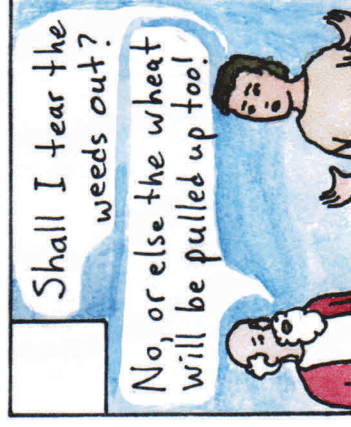 Shall I tear the
weeds out?
No, or else the wheat
will be pulled up too!